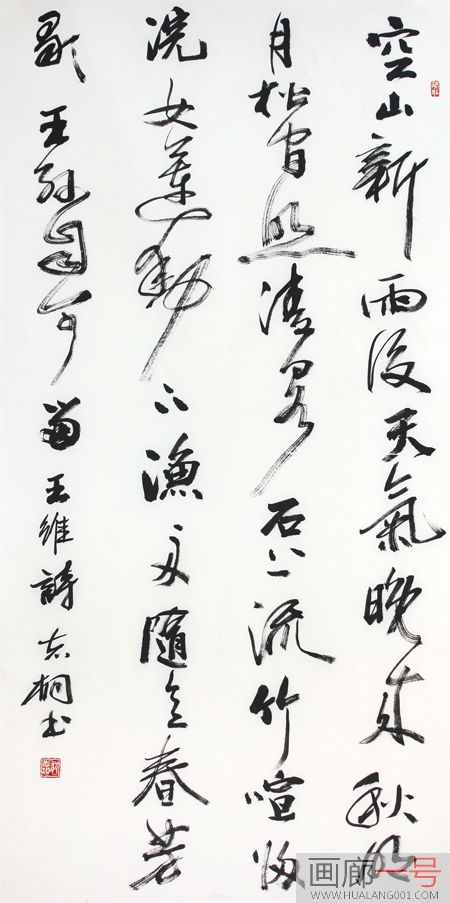 空山新雨後天氣晚來秋明
月松間照清泉石上流竹喧歸
浣女蓮動下漁舟隨意春芳
歇王孫自可留王維詩桐书
画廊一号
WWW.HUALANG001.COM